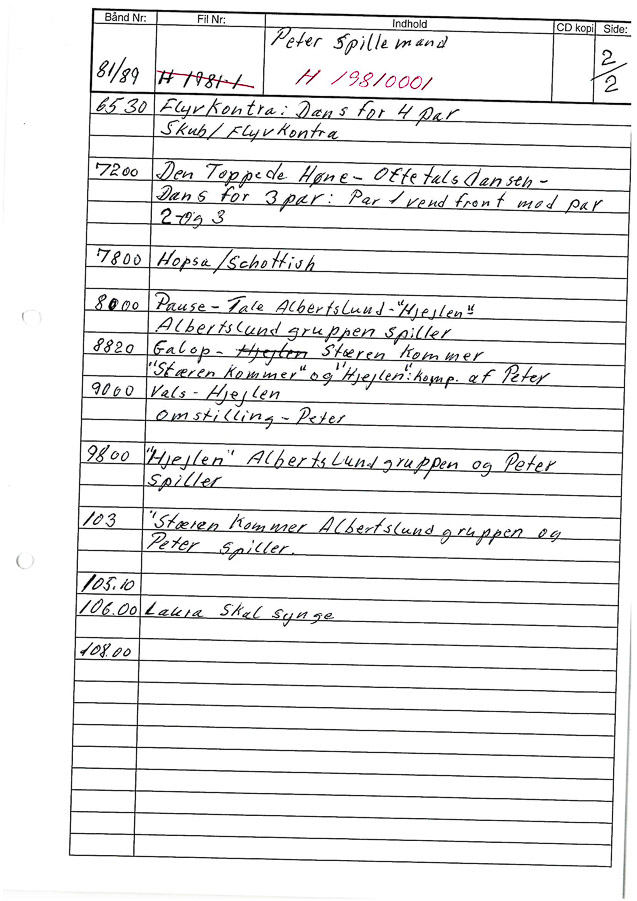 Bånd Nr: Fil Nr: Indhold CD kopi Side:
Peter Spillemand
81/89 H 1981-1 H 19810001 2/2
6530 Flyvkontra: Dans for 4 par
Skub/Flyvkontra
7200 Den Toppede Høne - Ottetalsdansen -
Dans for 3 par: Par 1 vend front mod par
2-og 3
7800 Hopsa/Schottish
8000 Pause - Tale Albertslund - "Hjejlen"
Albertslundgruppen spiller
8820 Galop - Hjejlen Stæren Kommer
"Stæren Kommer" og "Hjejlen": komp. af Peter
9000 Vals - Hjejlen
omstilling - Peter
9800 "Hjejlen" Albertslundgruppen og Peter
spiller
103 "Stæren Kommer Albertslundgruppen og
Peter spiller.
105.10
106.00 Laura skal synge
108.00